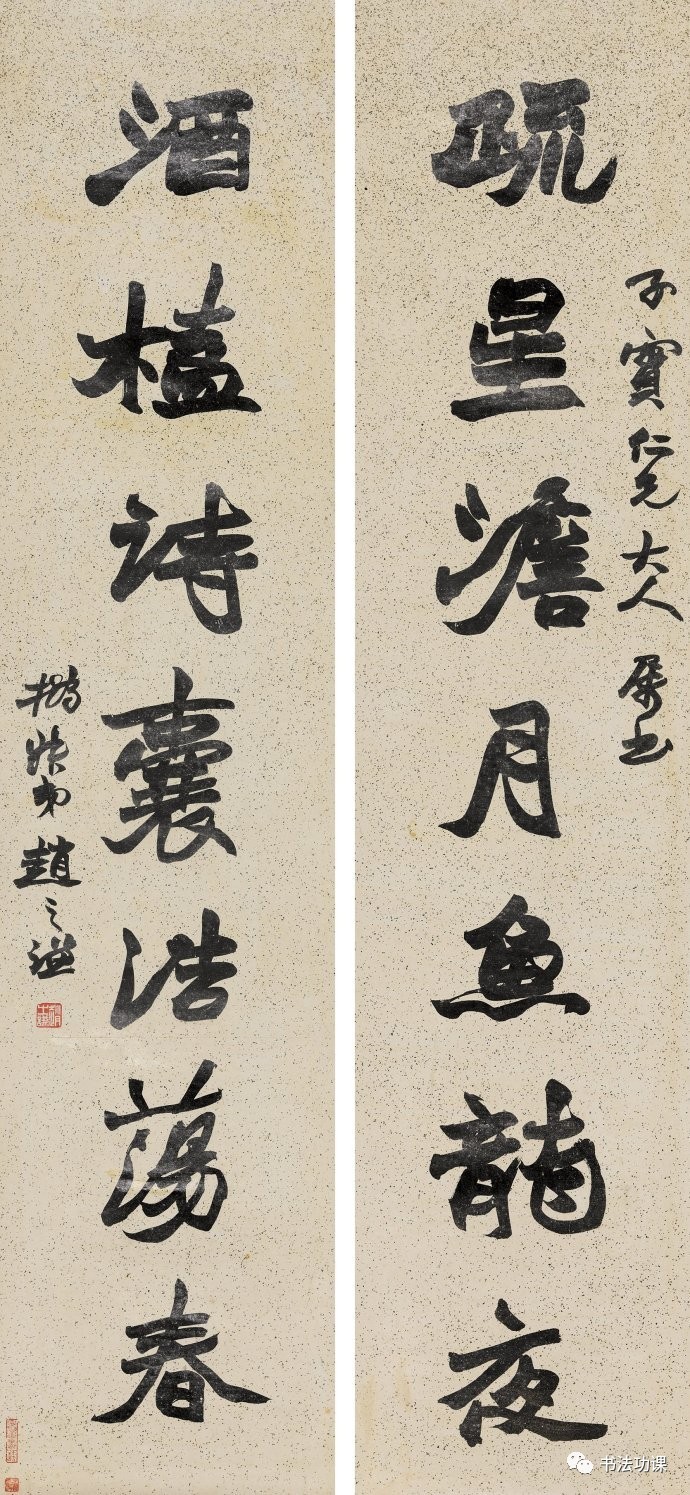 子實仁兄大人屬書
疏星澹月魚龍夜
酒榼詩囊浩蕩春
撝叔弟趙之謙
书法功课